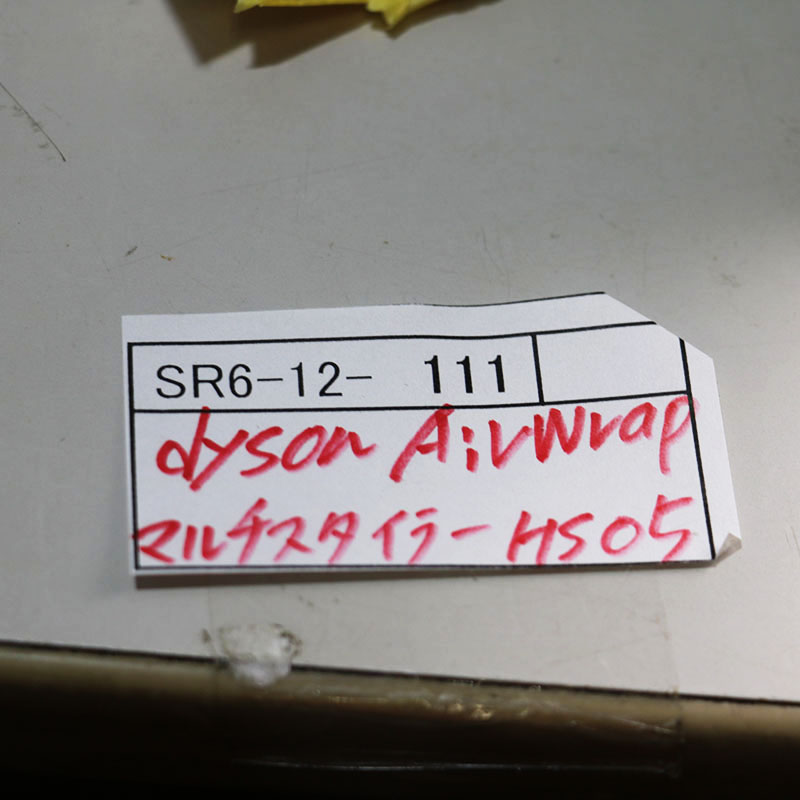 SR6-12- 111
dyson Airwrap
マルチスタイラー HS05